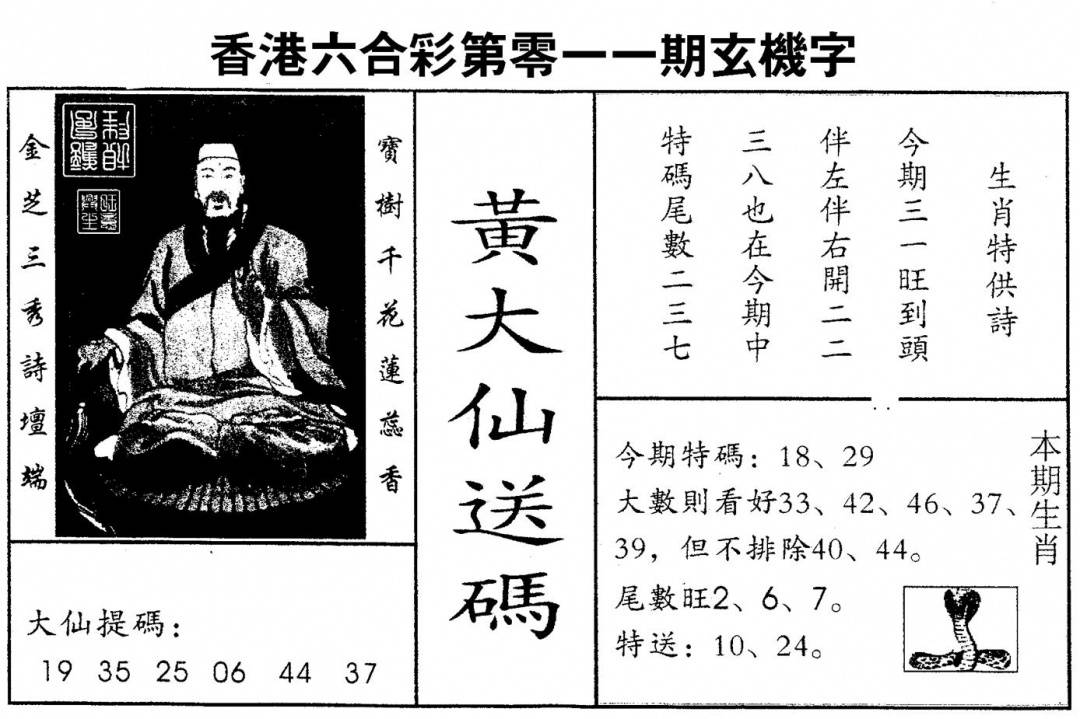 香港六合彩第零一一期玄機字
寶樹千花蓮蕊香
金芝三秀詩壇端
大仙提碼：
19 35 25 06 44 37
黃大仙送碼
生肖特供詩
今期三一旺到頭
伴左伴右開二二
三八也在今期中
特碼尾數二三七
本期生肖
今期特碼：18、29
大數則看好33、42、46、37、
39，但不排除40、44。
尾數旺2、6、7。
特送：10、24。